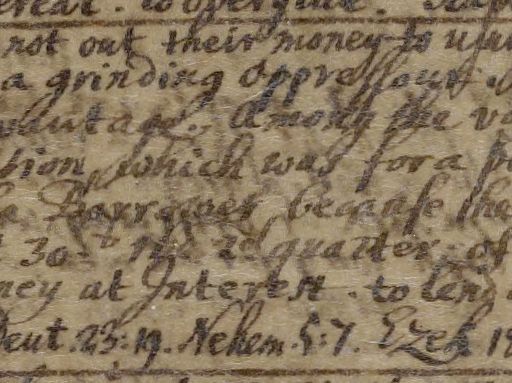 not out their money to
a grinding oppressour.
vantage. Among the
tion, which was for a
Barrower because
30 the 2d quarter. of
ney at Interest. to lend
Deut. 23:19. Nehem. 5:7. Ezek 18